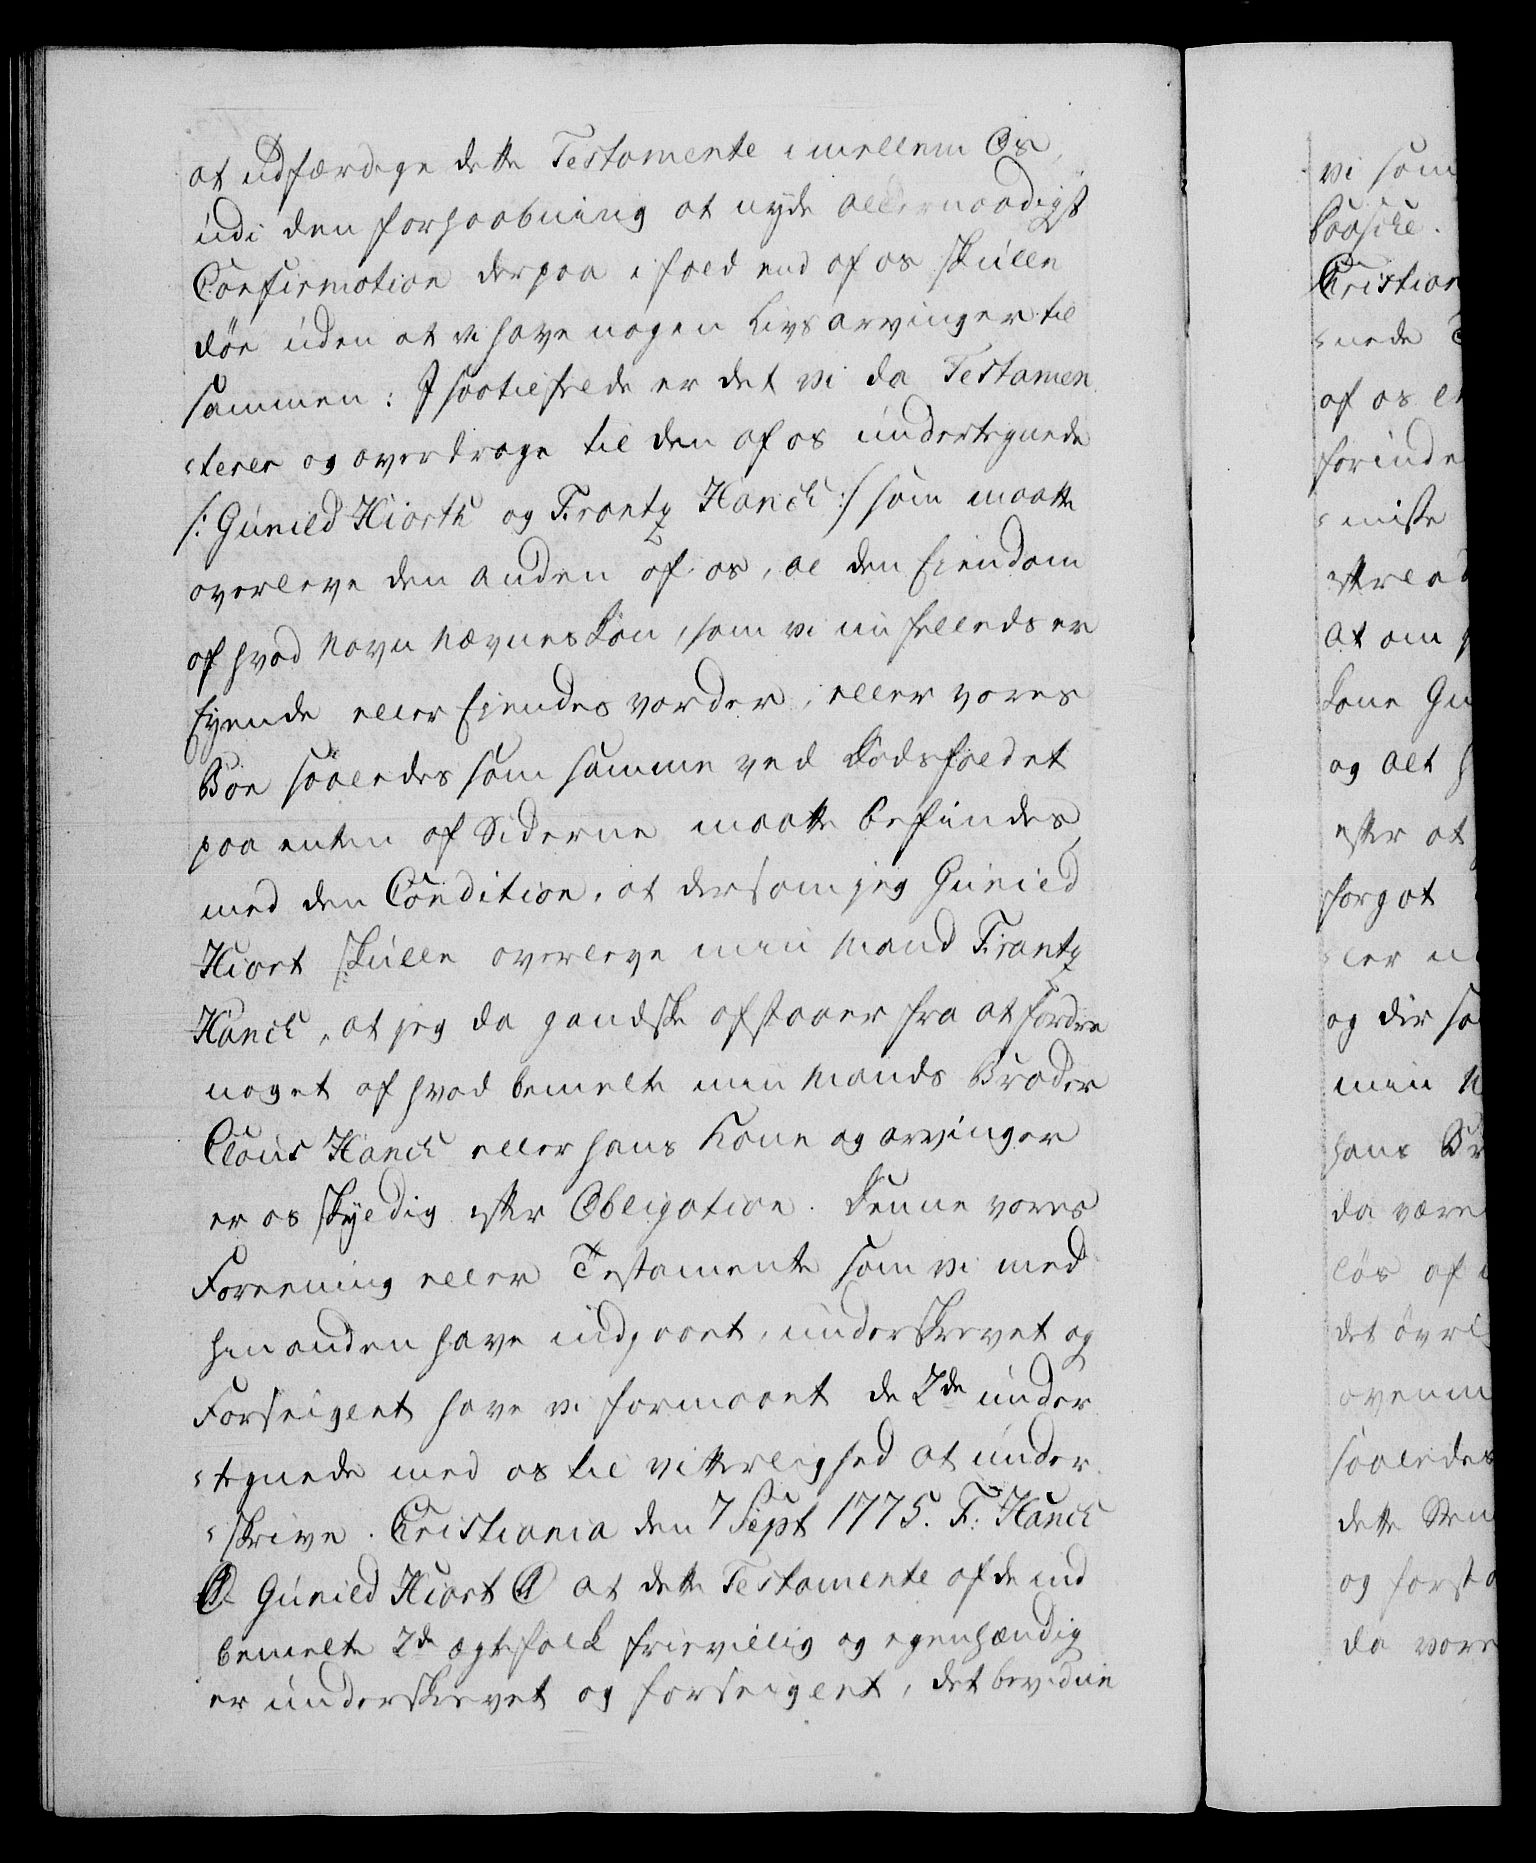 at udfærdige dette Testamente imellem Os,
udi den forhaabning at nyde allernaadigst
Confirmation derpaa i fald end af os skulle
döe uden at vi have nogen Livs arvinger til
sammen: J saatilfælde er det vi da Testamen
-terer og overdrage til den af os undertegnede
/: Gunild Hiorth og Frantz Hanch :/ som maatte
overleve den anden af os, al den Eiendom
af hvad Navn Nævnes kan, som vi nu felleds er
Eyende eller Eiendes vorder, eller vores
Boe saaledes som samme ved Dödsfaldet
paa enten af Siderne maatte befindes,
med den Condition, at dersom jeg Gunild
Hiort skulle overleve min Mand Frantz
Hanch, at jeg da gandske afstaaer fra at fordre
noget af hvad bemelte min Mands Broder
Claus Hanch eller hans Kone og arvinger
er os skyldig efter Obligation. Denne vores
Foreening eller Testamente som vi med
hinanden have indgaaet, underskrevet og
Forseiglet have vi formaaet de 2de under
-tegnede med os til vitterlighed at under
-skrive. Cristiania den 7 Sept 1775. F: Hanch
Gunild Hiort at dette Testamente af de ind
bemelte 2de ægtefolk frievillig og egenhændig
er underskrevet og forseiglet, det bevidne
vi som
Cristian
-nede
af os
-miste
at om
kone Gu
og alt
efter at
og der
min
hans Br
da være
lös af
det övri
saaledes
dette
og forst
da vore